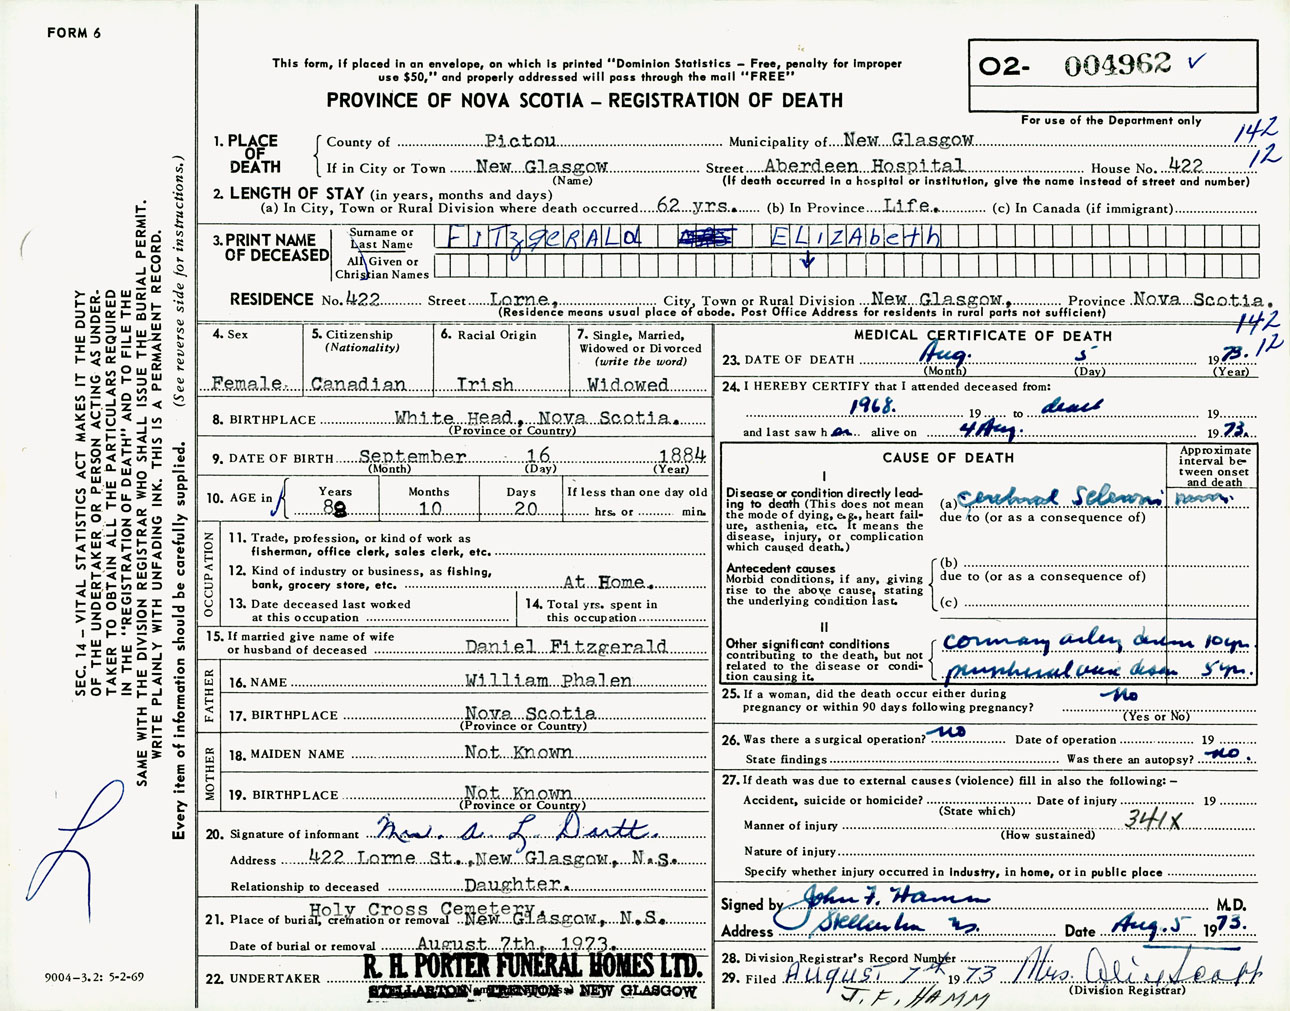 FORM 6
This form, if placed in an envelope, on which is printed "Dominion Statistics – Free, penalty for improper
use $50," and properly addressed will pass through the mail "FREE"
PROVINCE OF NOVA SCOTIA – REGISTRATION OF DEATH
O2- 004962 ✓
For use of the Department only
142
12
1. PLACE OF DEATH
County of Pictou Municipality of New Glasgow
If in City or Town New Glasgow Street Aberdeen Hospital House No. 422
(Name) (If death occurred in a hospital or institution, give the name instead of street and number)
2. LENGTH OF STAY (in years, months and days)
(a) In City, Town or Rural Division where death occurred 62 yrs. (b) In Province Life. (c) In Canada (if immigrant)
3. PRINT NAME OF DECEASED
Surname or Last Name FITzgeRALd ELIZAbeth
All Given or Christian Names
RESIDENCE No. 422 Street Lorne, City, Town or Rural Division New Glasgow, Province Nova Scotia.
(Residence means usual place of abode. Post Office Address for residents in rural parts not sufficient)
142
12
4. Sex
Female.
5. Citizenship
(Nationality)
Canadian
6. Racial Origin
Irish
7. Single, Married,
Widowed or Divorced
(write the word)
Widowed
8. BIRTHPLACE White Head, Nova Scotia.
(Province of Country)
9. DATE OF BIRTH September 16 1884
(Month) (Day) (Year)
10. AGE in
Years Months Days If less than one day old
88 10 20 hrs. or min.
OCCUPATION
11. Trade, profession, or kind of work as
fisherman, office clerk, sales clerk, etc.
12. Kind of industry or business, as fishing,
bank, grocery store, etc. At Home.
13. Date deceased last worked
at this occupation
14. Total yrs. spent in
this occupation
15. If married give name of wife
or husband of deceased Daniel Fitzgerald
FATHER
16. NAME William Phalen
17. BIRTHPLACE Nova Scotia
(Province or Country)
MOTHER
18. MAIDEN NAME Not Known
19. BIRTHPLACE Not Known
(Province or Country)
20. Signature of informant Mrs. A L Dartt.
Address 422 Lorne St., New Glasgow, N.S.
Relationship to deceased Daughter.
Holy Cross Cemetery,
21. Place of burial, cremation or removal New Glasgow, N.S.
Date of burial or removal August 7th, 1973.
22. UNDERTAKER R. H. PORTER FUNERAL HOMES LTD.
STELLARTON - TRENTON - NEW GLASGOW
MEDICAL CERTIFICATE OF DEATH
23. DATE OF DEATH Aug. 5 1973.
(Month) (Day) (Year)
24. I HEREBY CERTIFY that I attended deceased from:
1968. 19 to death 19
and last saw her alive on 4 Aug. 1973.
CAUSE OF DEATH
Approximate interval between onset and death
I
Disease or condition directly leading to death (This does not
mean the mode of dying, e.g., heart failure, asthenia, etc. It means the
disease, injury, or complication
which caused death.)
(a) cerebral Sclerosis
due to (or as a consequence of)
Antecedent causes
Morbid conditions, if any, giving
rise to the above cause, stating
the underlying condition last.
(b)
due to (or as a consequence of)
(c)
II
Other significant conditions
contributing to the death, but not
related to the disease or condition causing it.
coronary artery disease 10 yrs.
peripheral vasc disease 5 yr.
25. If a woman, did the death occur either during
pregnancy or within 90 days following pregnancy? No
(Yes or No)
26. Was there a surgical operation? no Date of operation 19
State findings Was there an autopsy? no.
27. If death was due to external causes (violence) fill in also the following: –
Accident, suicide or homicide? Date of injury 19
(State which)
Manner of injury 341X
(How sustained)
Nature of injury
Specify whether injury occurred in industry, in home, or in public place
Signed by John F. Hamm M.D.
Address Stellarton NS. Date Aug. 5 1973.
28. Division Registrar's Record Number
29. Filed August 7th 1973 Mrs.
(Division Registrar)
J. F. HAMM
SEC. 14 – VITAL STATISTICS ACT MAKES IT THE DUTY
OF THE UNDERTAKER OR PERSON ACTING AS UNDER-
TAKER TO OBTAIN ALL THE PARTICULARS REQUIRED
IN THE "REGISTRATION OF DEATH" AND TO FILE THE
SAME WITH THE DIVISION REGISTRAR WHO SHALL ISSUE THE BURIAL PERMIT.
WRITE PLAINLY WITH UNFADING INK. THIS IS A PERMANENT RECORD.
Every item of information should be carefully supplied. (See reverse side for instructions.)
9004-3.2: 5-2-69